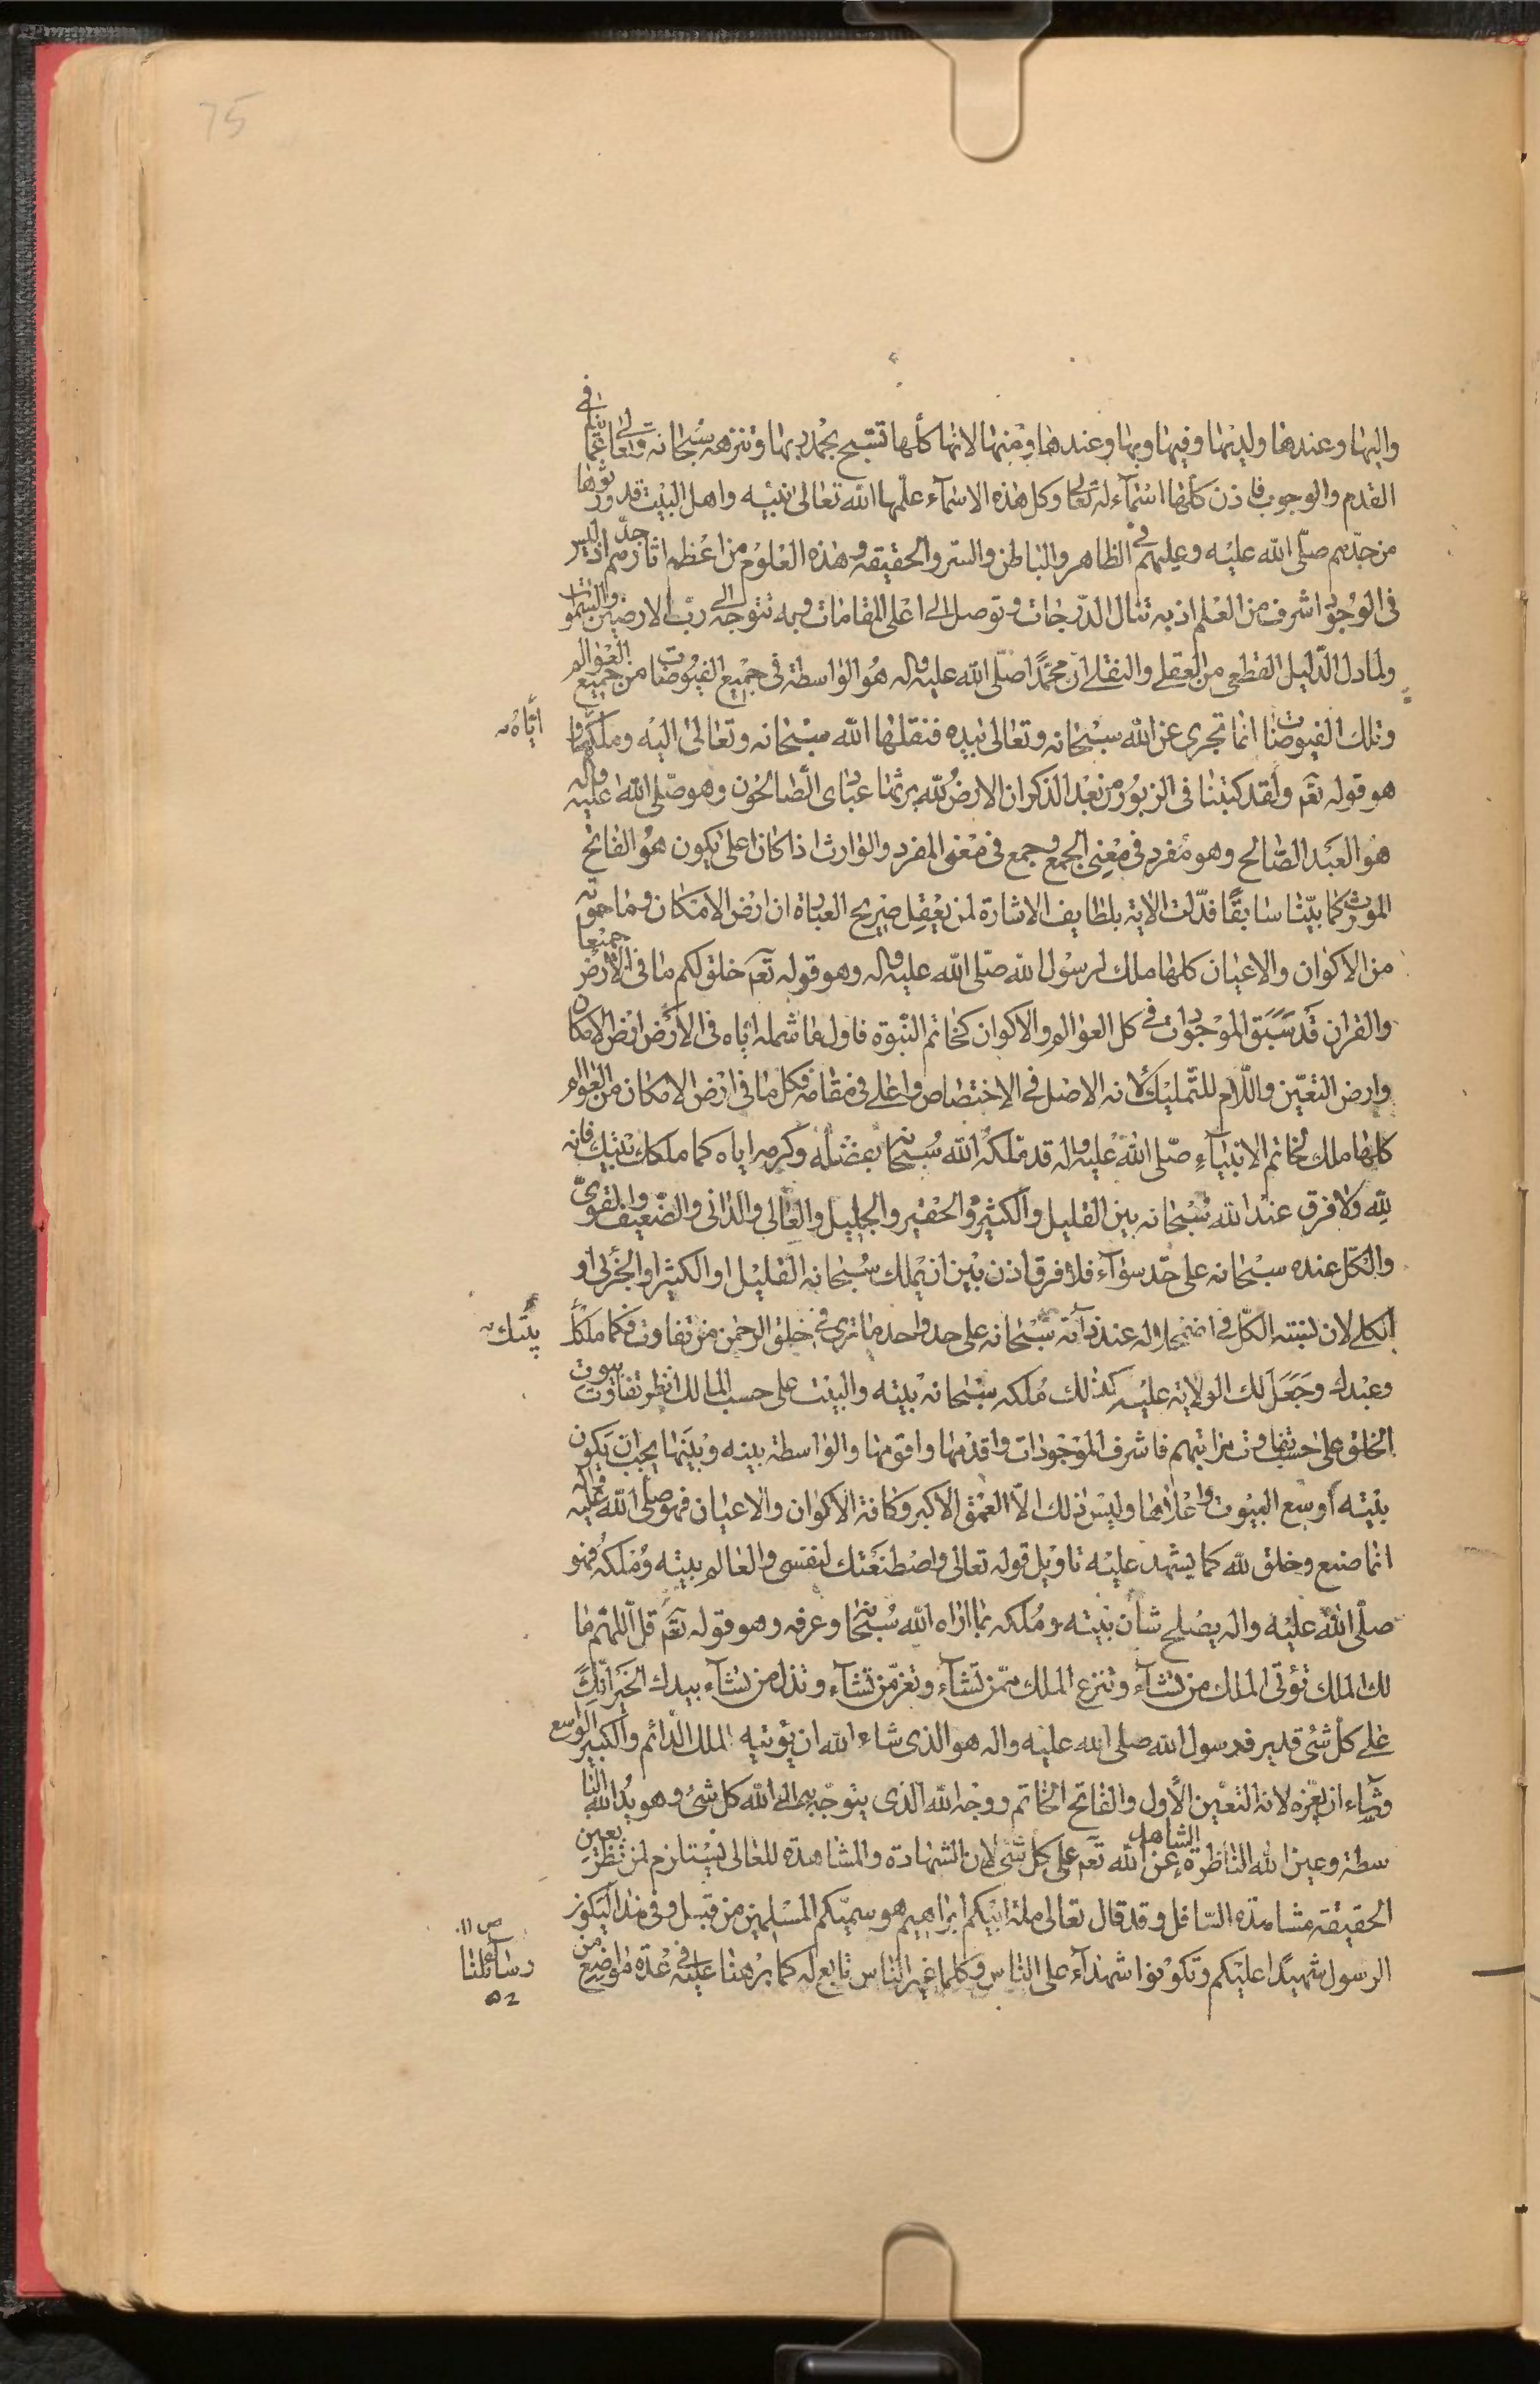 75
واليها وعندها ولديها وفيها وبها وعندها ومنها لانها كلها تسبح بحمد ربها وتنزهه سبحانه وتعالى عما ينم في
القدم والوجوب فاذن كلها اسماء له تعالى وكل هذه الاسماء علمها الله تعالى نبيه واهل البيت قد ورثوها
من جدهم صلى الله عليه وعليهم في الظاهر والباطن والسر والحقيقة وهذه العلوم من اعظم اثار جدهم اذ ليس
في الوجود اشرف من العلم اذ به تنال الدرجات وتوصل الى اعلى المقامات وبه تتوجه الى رب الارضين والسموات
ولما دل الدليل القطعي من العقلي والنقلي ان محمدا صلى الله عليه واله هو الواسطة في جميع الفيوضات من جميع العوالم
وتلك الفيوضات انما تجري عن الله سبحانه وتعالى بيده فنقلها الله سبحانه وتعالى اليه وملكها
اياه
هو قوله تعم ولقد كتبنا في الزبور من بعد الذكر ان الارض لله يرثها عبادى الصالحون وهو صلى الله عليه واله
هو العبد الصالح وهو مفرد في معنى الجمع وجمع في معنى المفرد والوارث اذا كان اعلى يكون هو الفاتح
المورث كما بينا سابقا فدلت الاية بلطايف الاشارة لمن يعقل صريح العبارة ان ارض الامكان وما حوته
من الاكوان والاعيان كلها ملك لرسول الله صلى الله عليه واله وهو قوله تعم خلق لكم ما في الارض جميعا
والقران قد سبق الموجودات في كل العوالم والاكوان كخاتم النبوة فاول ما شمله اياه في الارض ارض الامكان
وارض التعين واللام للتمليك لانه الاصل في الاختصاص واعلى في مقامه فكل ما في ارض الامكان من العوالم
كلها ملك لخاتم الانبياء صلى الله عليه واله قد ملكه الله سبحانه بفضله وكرمه اياه كما ملكك بيتك فانه
لله ولا فرق عند الله سبحانه بين القليل والكثير والحقير والجليل والعالى والدانى والضعيف والقوى
والكل عنده سبحانه على حد سواء فلا فرق اذن بين ان يملك سبحانه القليل او الكثير او الجزئى او
الكلى لان نسبته الكل في اضمحلاله عند ذاته سبحانه على حد واحد ما ترى في خلق الرحمن من تفاوت فكما ملكك
بيتك
وعبدك وجعل لك الولاية عليه كذلك ملكه سبحانه بيته والبيت على حسب المالك انظر تفاوت بيوت
الخلق على حسب تفاوت مراتبهم فاشرف الموجودات واقدمها واقومها والواسطة بينه وبينها يجب ان يكون
بيته اوسع البيوت واعلاها وليس ذلك الا العمق الاكبر وكافة الاكوان والاعيان فهو صلى الله عليه واله
انما صنع وخلق لله كما يشهد عليه تاويل قوله تعالى واصطنعتك لنفسى والعالم بيته وملكه فهو
صلى الله عليه واله يصلح شان بيته وملكه بما اراه الله سبحانه وعرفه وهو قوله تعم قل اللهم ما
لك الملك تؤتى الملك من تشاء وتنزع الملك ممن تشاء وتعز من تشاء وتذل من تشاء بيدك الخير انك
على كل شئ قدير فرسول الله صلى الله عليه واله هو الذى شاء الله ان يؤتيه الملك الدائم والكبير الواسع
وشاء ان يعزه لانه التعين الاول والفاتح الخاتم ووجه الله الذى يتوجه به الى الله كل شئ وهو يد الله البا
سطة وعين الله الناظرة الشاهد عن الله تعم على كل شئ لان الشهادة والمشاهدة للعالى يستلزم لمن نظر بعين
الحقيقة مشاهدة السافل وقد قال تعالى ملة ابيكم ابراهيم هو سميكم المسلمين من قبل وفى هذا ليكون
الرسول شهيدا عليكم وتكونوا شهداء على الناس وكلما غير الناس تابع له كما برهنا عليه في عدة مواضع من
رسائلنا